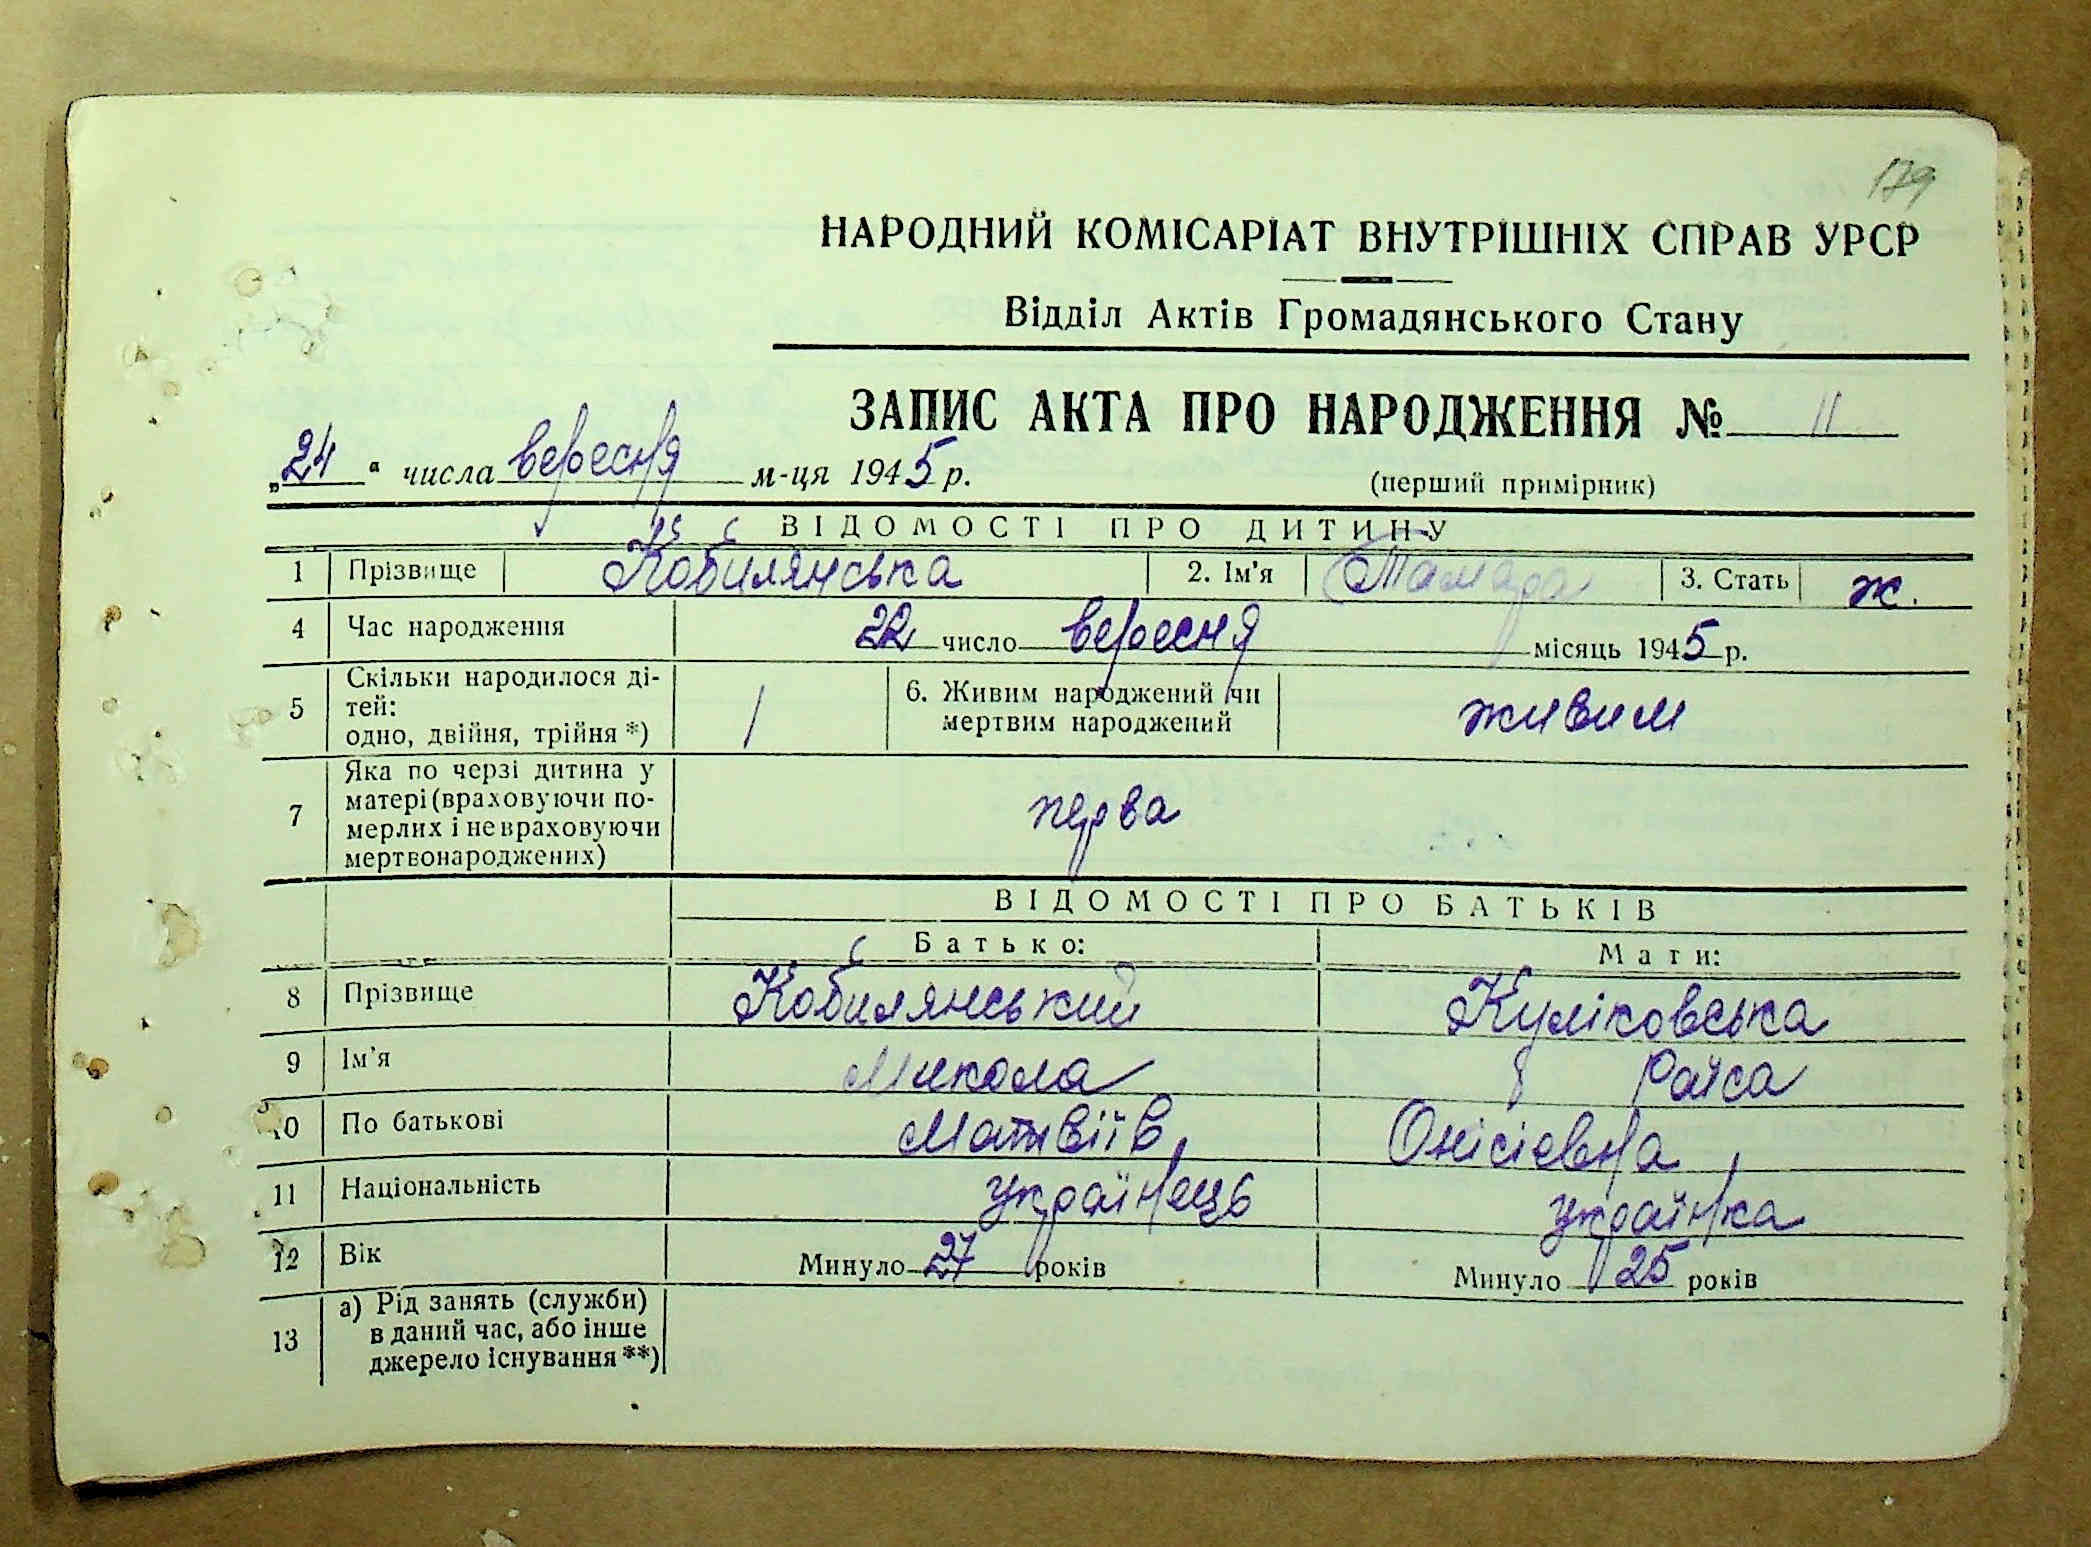 179
НАРОДНИЙ КОМІСАРІАТ ВНУТРІШНІХ СПРАВ УРСР
Відділ Актів Громадянського Стану
ЗАПИС АКТА ПРО НАРОДЖЕННЯ № 11
„24" числа вересня м-ця 1945 р. (перший примірник)
ВІДОМОСТІ ПРО ДИТИНУ
1 Прізвище Кобилянська 2. Ім'я Тамара 3. Стать ж.
4 Час народження 22 число вересня місяць 1945 р.
5 Скільки народилося ді-
тей:
одно, двійня, трійня *) 1 6. Живим народжений чи
мертвим народжений живим
7 Яка по черзі дитина у
матері (враховуючи по-
мерлих і не враховуючи
мертвонароджених) перва
ВІДОМОСТІ ПРО БАТЬКІВ
Батько: Мати:
8 Прізвище Кобилянський Куліковська
9 Ім'я Микола Раїса
10 По батькові Матвіїв Онісіевна
11 Національність українець українка
12 Вік Минуло 27 років Минуло 25 років
13 а) Рід занять (служби)
в даний час, або інше
джерело існування **)